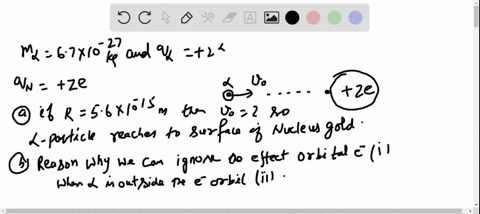 mα = 6.7×10^-27 kg and qα = +2e
qN = +Ze
α v0 +Ze
(a) if R = 5.6×10^-15 m then v0 = ? so
α-particle reaches to surface of Nucleus gold.
(b) Reason why we can ignore effect orbital e- (i)
when α is outside the e- orbit (ii).